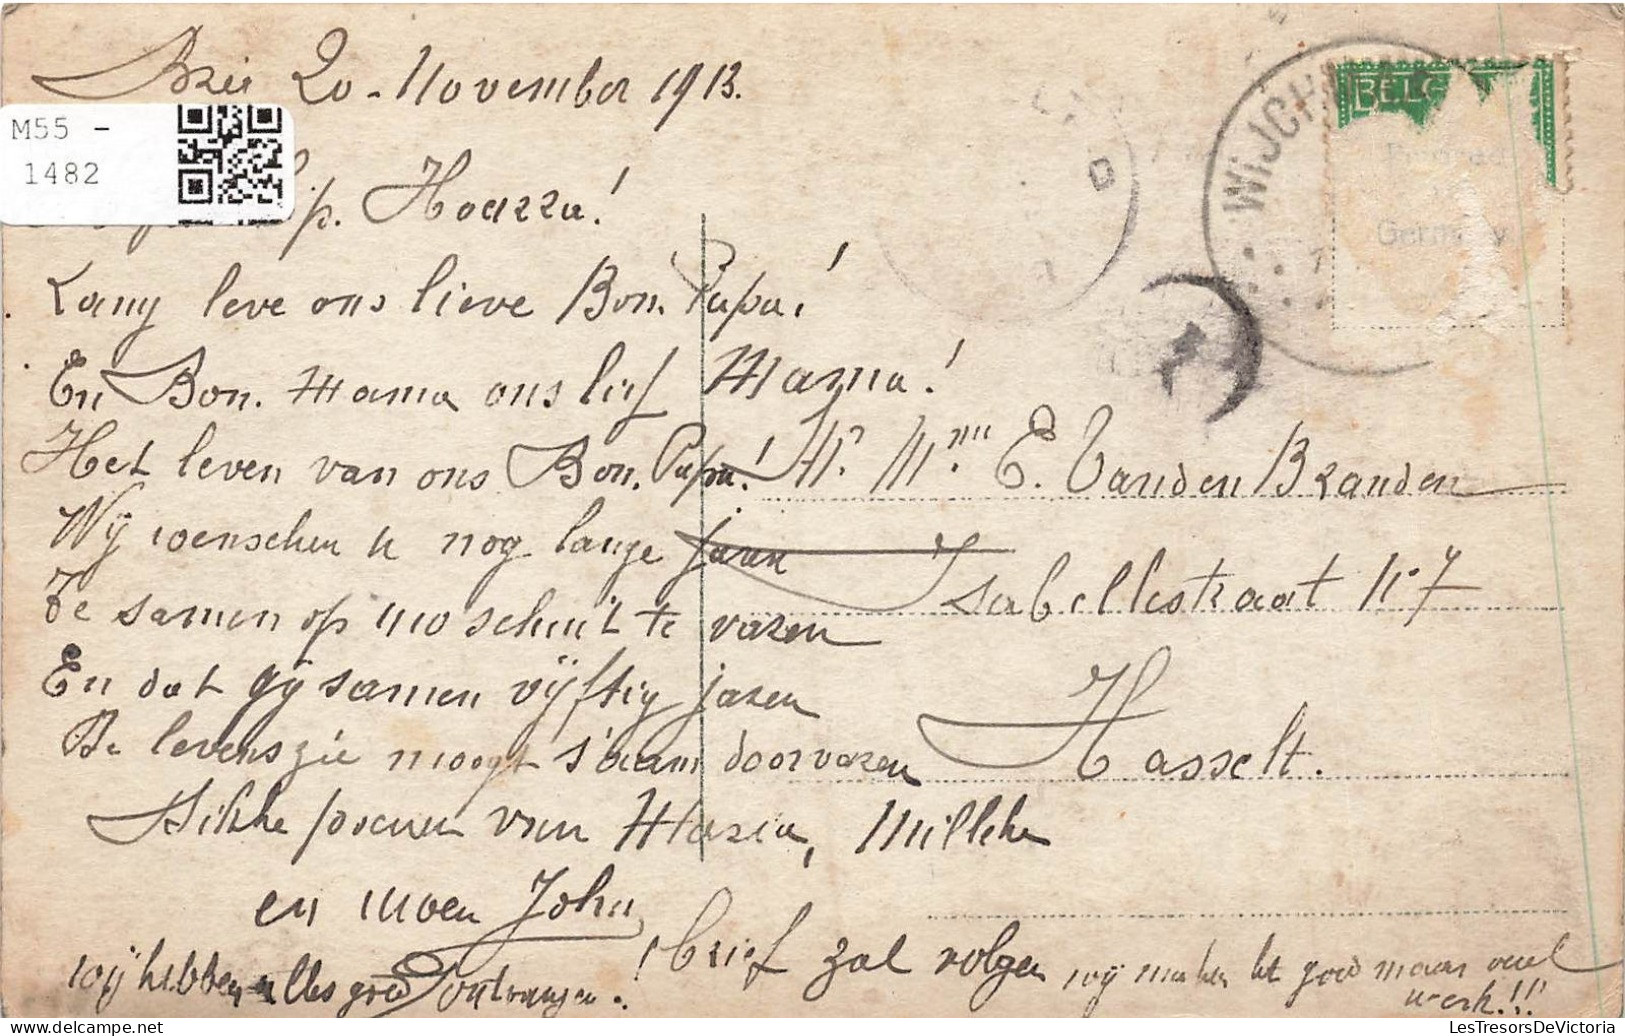 20 - November 1913.
M55 -
1482
Hip. Hoerra!
Lang leve ons lieve Bon. Papa!
En Bon. Mama ons lief Mama!
Het leven van ons Bon. Papa!
Wij wenschen u nog lange jaren
Te samen op uw schuit te varen
En dat gij samen vijftig jaren
De levenszie moogt s'aam doorvaren
Dikke poenen van Maria, Milleke
en uwen John
wij hebben alles goed ontvangen.
brief zal volgen wij maken het goed maar veel
werk!!!
Mr. Mme E. Vanden Branden
Isabellestraat N° 7
Hasselt.
WIJCH
BELG
Germany
LesTresorsDeVictoria
www.delcampe.net